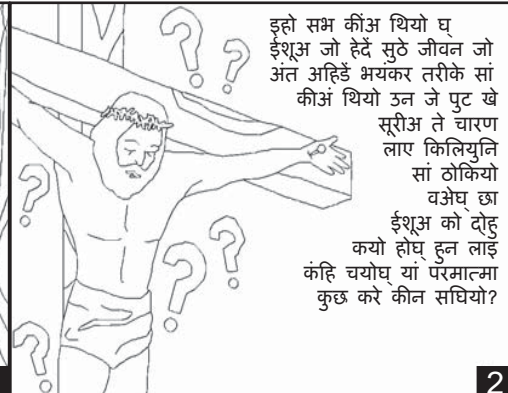 इहो सभ कींअ थियो घ्
ईशूअ जो हेदें सुठे जीवन जो
अंत अहिडें भयंकर तरीके सां
कीअं थियो उन जे पुट खे
सूरीअ ते चारण
लाए किलियुनि
सां ठोकियो
वअेघ् छा
ईशूअ को दोहु
कयो होघ् हुन लाइ
कंहि चयोघ् यां परमात्मा
कुछ करे कीन सघियो?
2